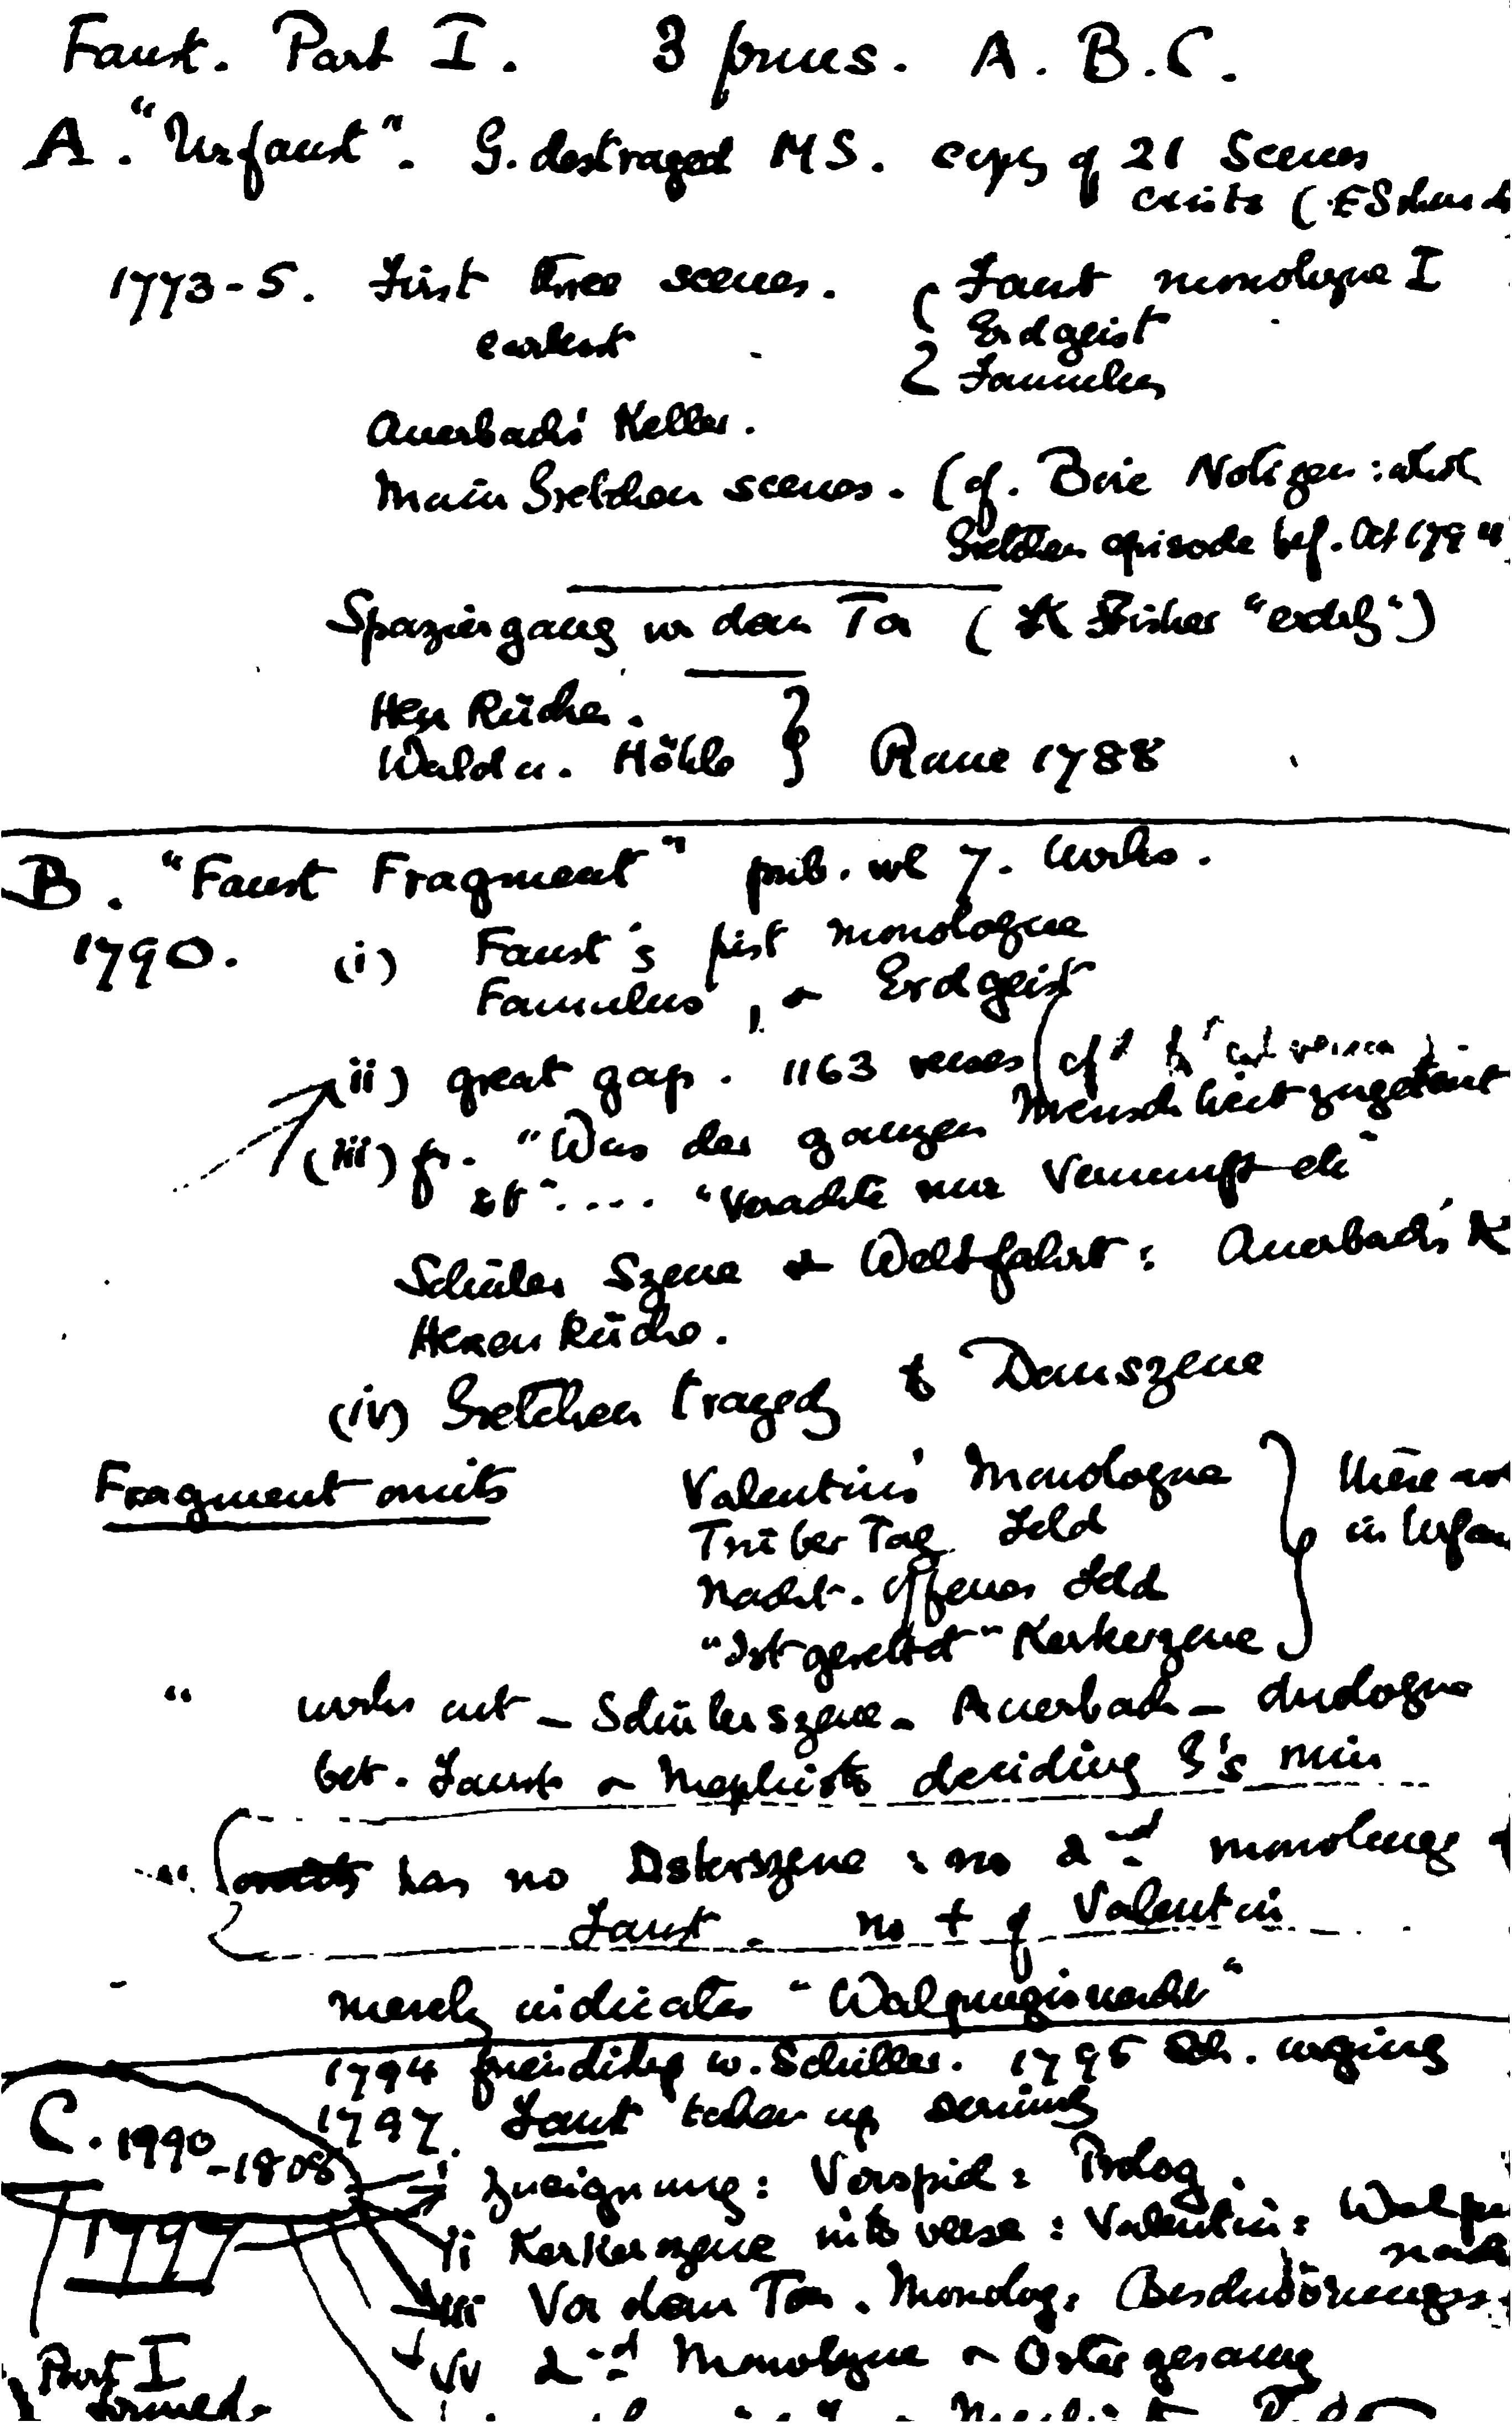 Faust. Part I. 3 forms. A. B. C.
A. "Urfaust". G. destroyed MS. copy of 21 Scenes
exists (E Schmidt
1773-5. First three scenes. Faust monologue I
earliest Erdgeist
Famulus
Auerbach's Keller.
Main Gretchen scenes. (cf. Boie Notizen:
Gretchen episode bef. Oct
Spaziergang vor dem Tor (K Fischer "erdig")
Hexe Küche.
Wald u. Höhle } Rome 1788
B. "Faust Fragment" pub. vol 7. Works.
1790. (i) Faust's first monologue
Famulus, Erdgeist
(ii) great gap. 1163 verses (cf
(iii) fr. "Was der ganzen Menschheit zugeteilt
ist".... "Verachte nur Vernunft etc"
Schüler Szene + Weltfahrt: Auerbach's K
Hexen Küche.
(iv) Gretchen tragedy to Domszene
Fragment omits Valentin's Monologue
Trüber Tag. Feld
Nacht. Offenes Feld
"Ist gerettet" Kerkerszene
these
in Urfau
" works out - Schülerszene - Auerbach - dialogue
bet. Faust Mephisto deciding
" has no Osterszene: no 2nd monologue
Faust. no + of Valentin
merely indicates "Walpurgisnacht"
1794 friendship w. Schiller. Sch. urging
C. 1990-1808 1797. Faust taken up seriously
i Zueignung: Vorspiel: Prolog.
1797 ii Kerkerszene into verse: Valentin: Walpu
nacht
iii Vor dem Tor. Monolog: Beschwörungs
Part I iv 2nd Monologue Ostergesang
formed.